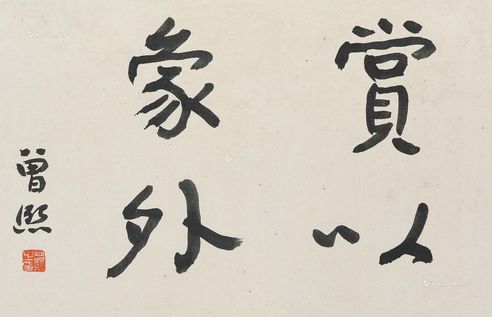 賞以
象外
曾熙